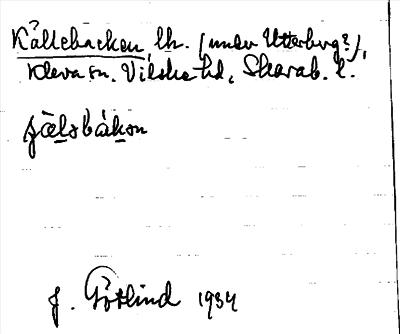 Källebacken, lh. (under Utterberg?),
Kleva sn. Vilske hd, Skarab. l.
J. Götlind 1934